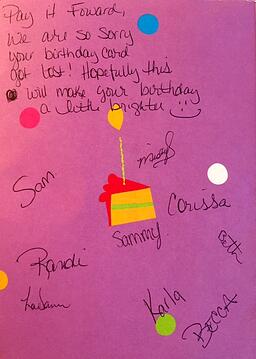 Pay it Foward,
We are so sorry
your birthday card
got lost! Hopefully this
will make your birthday
a little brighter
Sam
Corissa
Sammy
Beth
Randi
Karla
BECCA